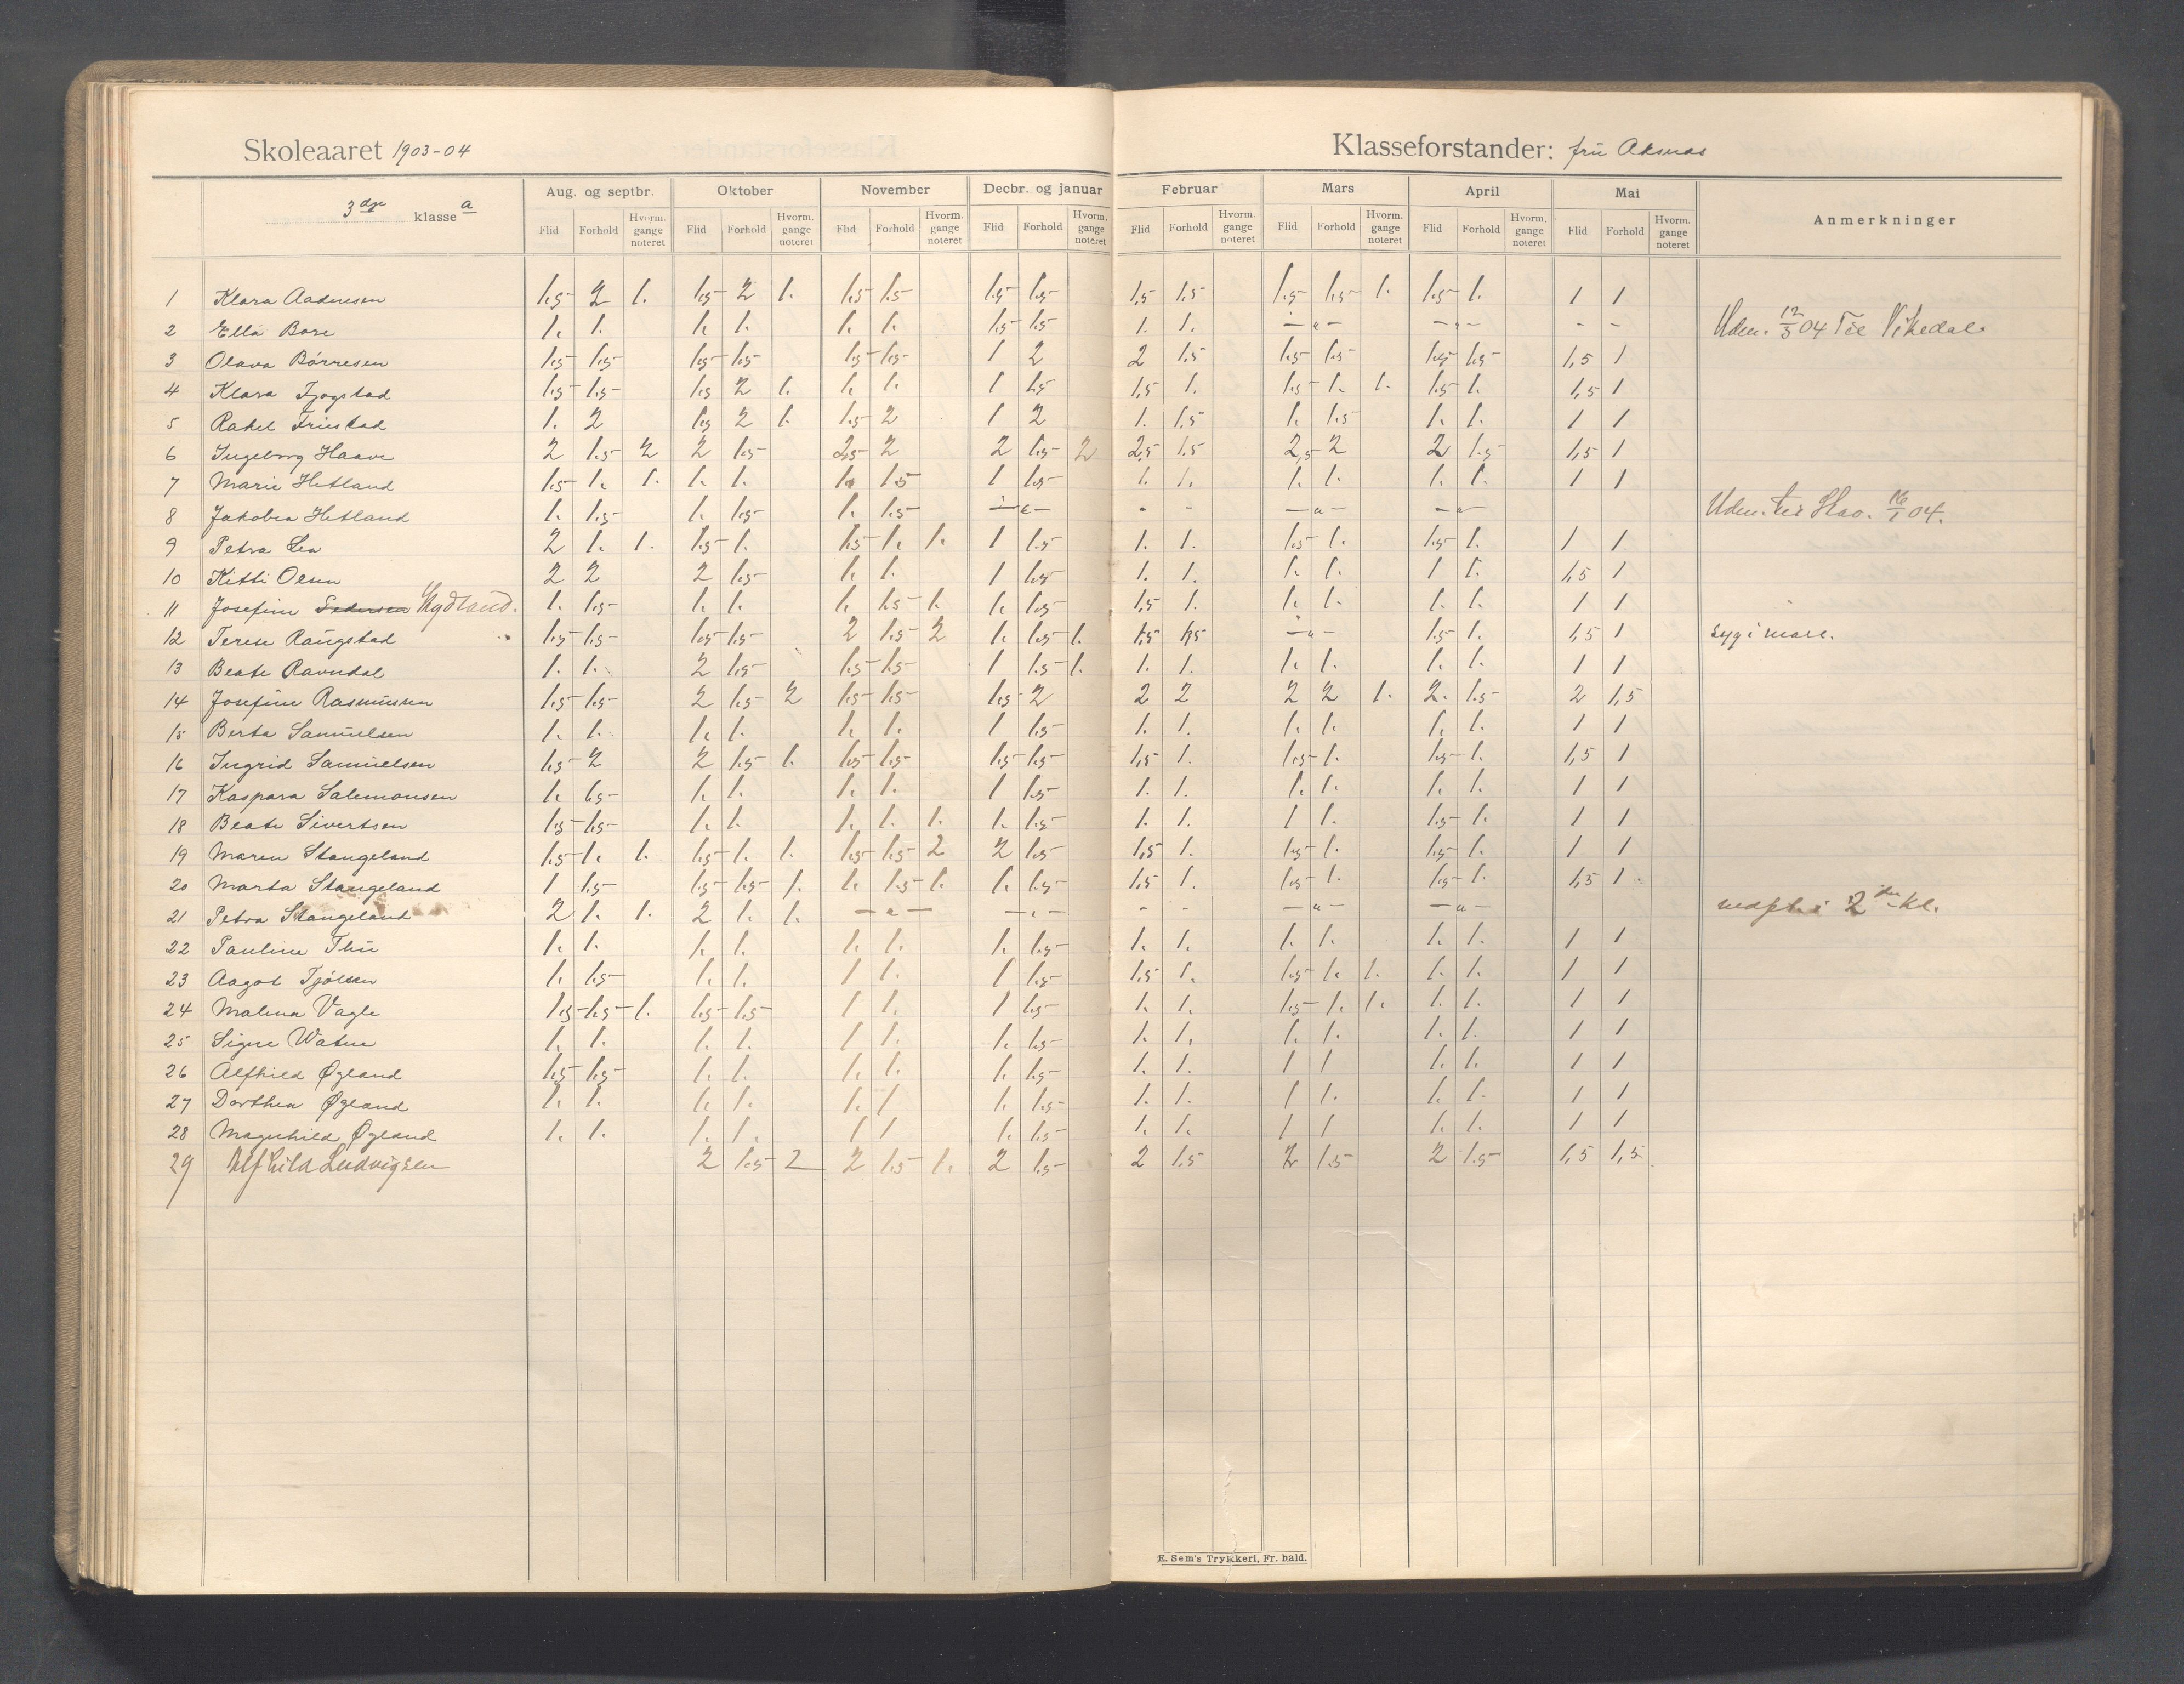 Skoleaaret 1903-04
Klasseforstander: fru Aksnes
3dje klasse a
Aug. og septbr. Oktober November Decbr. og januar Februar Mars April Mai Anmerkninger
Flid Forhold Hvorm. gange noteret Flid Forhold Hvorm. gange noteret Flid Forhold Hvorm. gange noteret Flid Forhold Hvorm. gange noteret Flid Forhold Hvorm. gange noteret Flid Forhold Hvorm. gange noteret Flid Forhold Hvorm. gange noteret Flid Forhold Hvorm. gange noteret
1 Klara Aadnesen 1.5 2 1. 1.5 2 1. 1.5 1.5 1.5 1.5 1,5 1.5 1.5 1.5 1. 1.5 1. 1 1
2 Ella Bore 1. 1. 1. 1. 1. 1. 1.5 1.5 1. 1. — " — — " — - - Uden. 12/3 04 Til Vikedal.
3 Olava Börresen 1.5 1.5 1.5 1.5 1.5 1.5 1 2 2 1.5 1.5 1.5 1.5 1.5 1,5 1
4 Klara Fjogstad 1.5 1.5 1.5 2 1. 1. 1. 1 1.5 1,5 1. 1.5 1. 1. 1.5 1. 1,5 1
5 Rakel Friestad 1. 2 1.5 2 1. 1.5 2 1 2 1. 1,5 1. 1.5 1. 1. 1 1
6 Ingeborg Haave 2 1.5 2 2 1.5 2.5 2 2 1.5 2 2,5 1.5 2,5 2 2 1.5 1,5 1
7 Marie Hetland 1.5 1. 1. 1. 1. 1. 1.5 1 1.5 1. 1. 1. 1. 1. 1. 1 1
8 Jakobea Hetland 1. 1.5 1. 1.5 1. 1.5 — " — - - — " — — " — Uden. til Haa. 16/1 04.
9 Petra Lea 2 1. 1. 1.5 1. 1.5 1. 1. 1 1.5 1. 1. 1.5 1. 1.5 1. 1 1
10 Kitti Olsen 2 2 2 1.5 1. 1. 1 1.5 1. 1. 1. 1. 1 1. 1,5 1
11 Josefine Pedersen Nydland. 1. 1.5 1. 1. 1. 1.5 1. 1. 1.5 1,5 1. 1. 1. 1. 1. 1 1
12 Terese Raugstad 1.5 1.5 1.5 1.5 2 1.5 2 1. 1.5 1. 1,5 1,5 — " — 1.5 1. 1,5 1 syg i mars.
13 Beate Ravndal 1. 1. 2 1.5 1.5 1.5 1 1.5 1. 1. 1. 1. 1. 1. 1. 1 1
14 Josefine Rasmussen 1.5 1.5 2 1.5 2 1.5 1.5 1.5 2 2 2 2 2 1. 2. 1.5 2 1,5
15 Berta Samuelsen 1. 1. 1. 1. 1. 1. 1 1.5 1. 1. 1. 1. 1. 1. 1 1
16 Ingrid Samuelsen 1.5 2 2 1.5 1. 1.5 1.5 1.5 1.5 1,5 1. 1.5 1. 1.5 1. 1,5 1
17 Kaspara Salemonsen 1. 1.5 1. 1. 1. 1. 1 1.5 1. 1. 1. 1. 1. 1. 1 1
18 Beate Sivertsen 1.5 1.5 1. 1. 1. 1. 1. 1. 1.5 1. 1. 1 1. 1.5 1. 1 1
19 Maren Stangeland 1.5 1. 1. 1.5 1. 1. 1.5 1.5 2 2 1.5 1,5 1. 1.5 1. 1.5 1. 1 1
20 Marta Stangeland 1 1.5 1.5 1.5 1. 1. 1.5 1. 1. 1.5 1.5 1. 1.5 1. 1.5 1. 1,5 1
21 Petra Stangeland 2 1. 1. 2 1. 1. — " — — " — - - — " — — " — nedfl. i 2den kl.
22 Pauline Thu 1. 1. 1. 1. 1. 1. 1. 1.5 1. 1. 1. 1. 1. 1. 1 1
23 Aagot Tjölsen 1. 1.5 1. 1. 1 1. 1 1.5 1.5 1. 1.5 1. 1. 1. 1. 1 1
24 Malena Vagle 1.5 1.5 1. 1.5 1.5 1 1. 1 1.5 1. 1. 1.5 1. 1. 1. 1. 1 1
25 Signe Watne 1. 1. 1. 1. 1 1. 1. 1.5 1. 1. 1. 1. 1. 1. 1 1
26 Alfhild Øgland 1.5 1.5 1. 1. 1. 1. 1. 1.5 1. 1. 1 1 1. 1. 1 1
27 Dorthea Øgland 1. 1. 1. 1. 1. 1 1. 1.5 1. 1. 1 1. 1. 1. 1 1
28 Magnhild Øgland 1. 1. 1. 1. 1 1 1. 1.5 1. 1. 1 1 1. 1. 1 1
29 Alfhild Ludvigsen 2 1.5 2 2 1.5 1. 2 1.5 2 1.5 2 1.5 2 1.5 1,5 1,5
E. Sem's Trykkeri, Fr. hald.